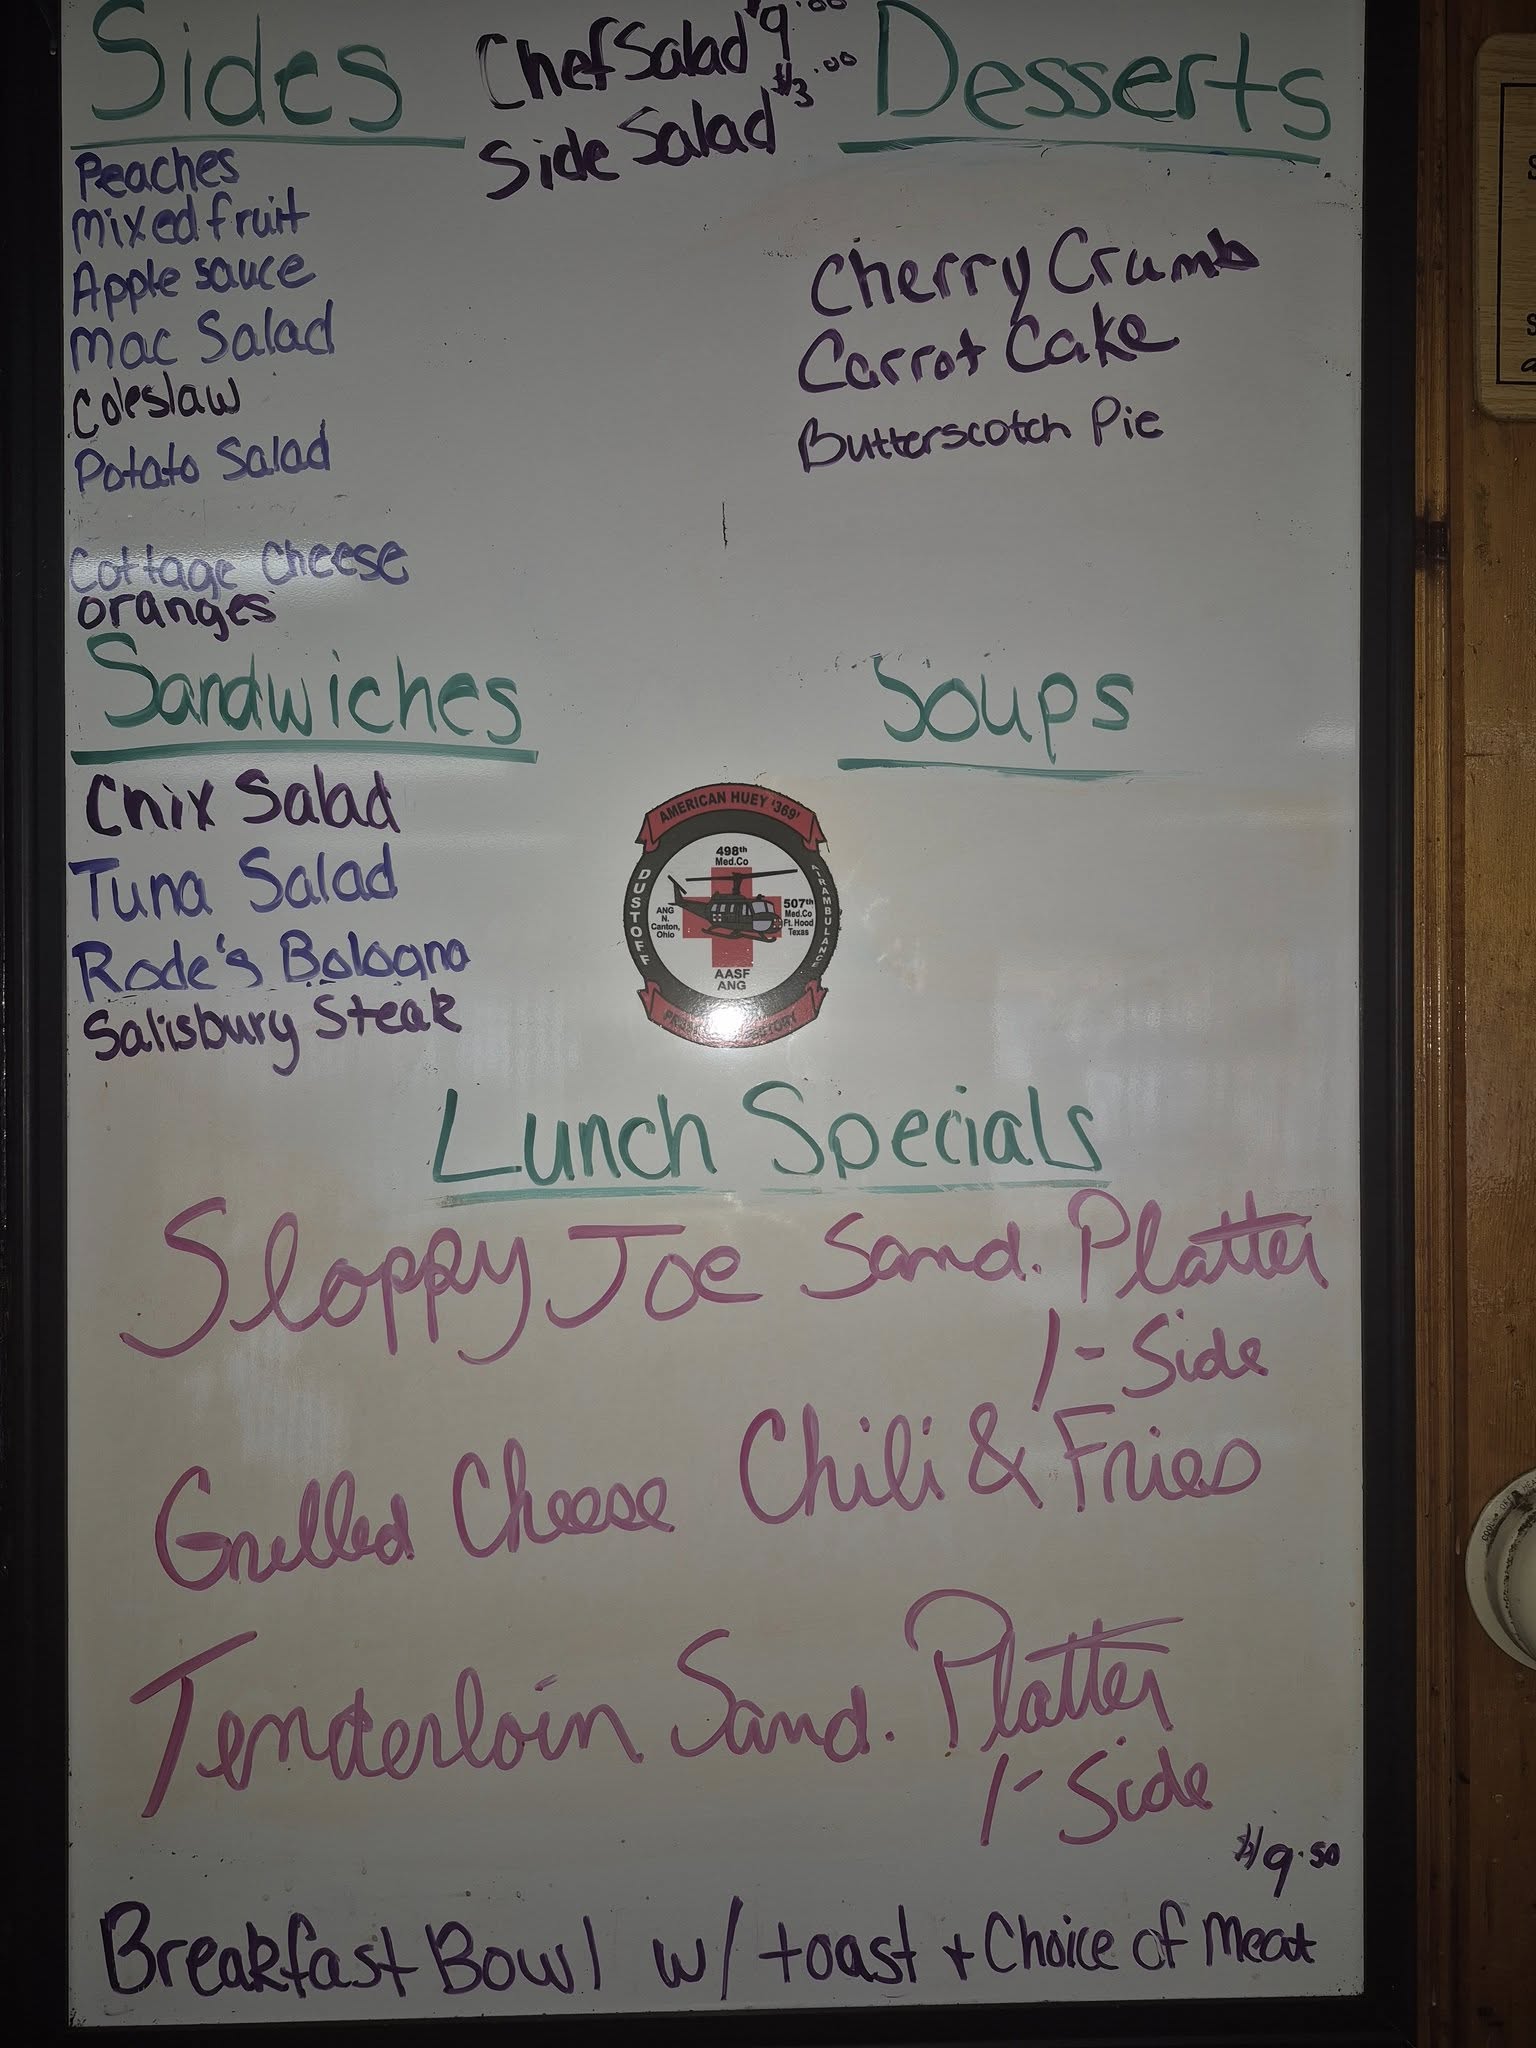 Sides
Chef Salad $9.00
Side Salad $3.00
Desserts
Peaches
mixed fruit
Apple sauce
mac Salad
Coleslaw
Potato Salad
Cottage Cheese
oranges
Cherry Crumb
Carrot Cake
Butterscotch Pie
Sandwiches
Chix Salad
Tuna Salad
Rode's Bologna
Salisbury Steak
Soups
AMERICAN HUEY '369'
498th
Med.Co
DUSTOFF
ANG
N.
Canton,
Ohio
507th
Med.Co
Ft. Hood
Texas
AIR AMBULANCE
AASF
ANG
Lunch Specials
Sloppy Joe Sand. Platter
1-Side
Grilled Cheese Chili & Fries
Tenderloin Sand. Platter
1-Side
$9.50
Breakfast Bowl w/ toast + Choice of Meat